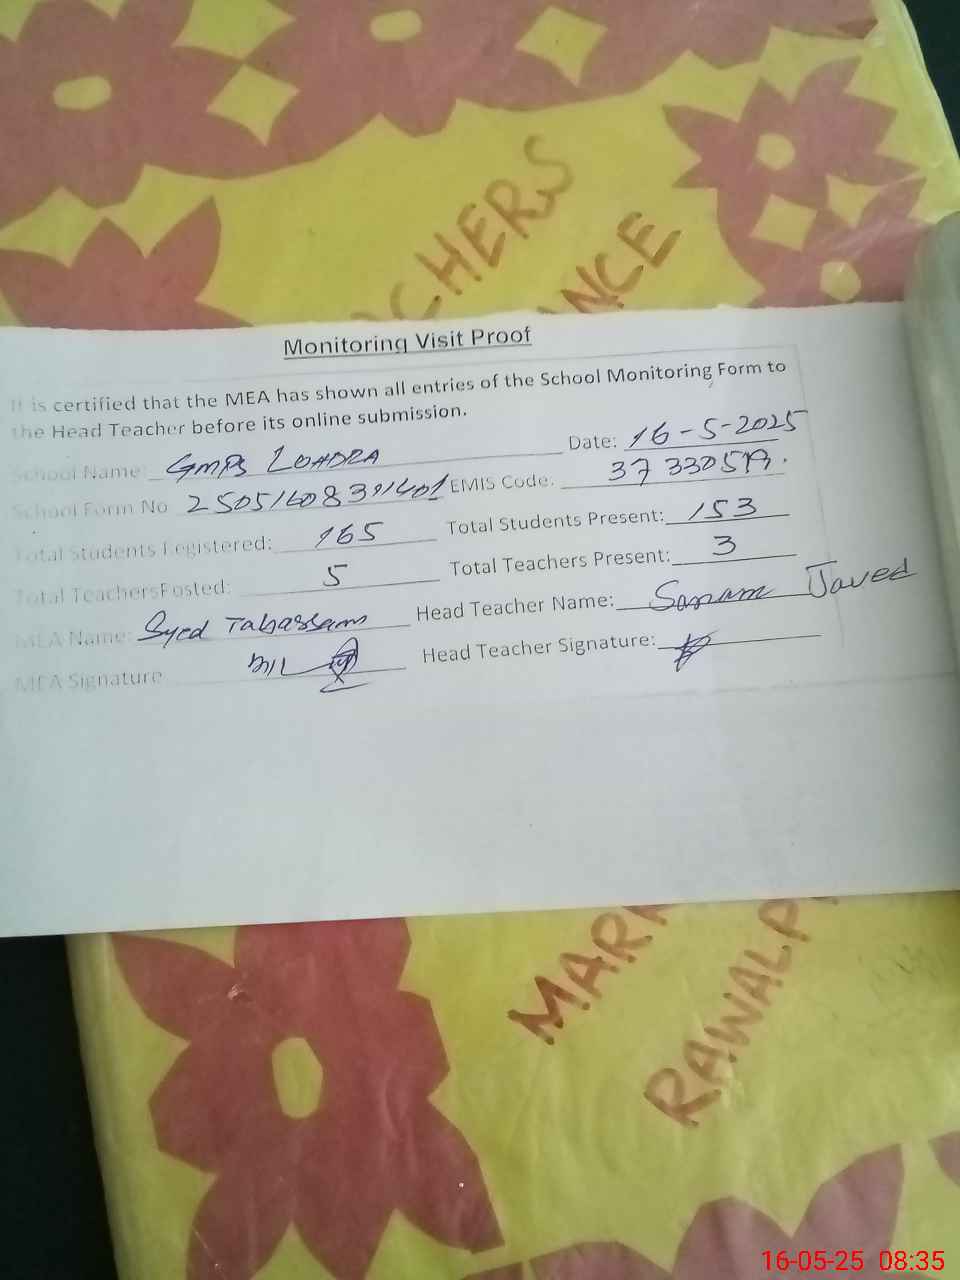 CHERS
NCE
Monitoring Visit Proof
It is certified that the MEA has shown all entries of the School Monitoring Form to
the Head Teacher before its online submission.
School Name GMPS LOHDRA Date: 16-5-2025
School Form No EMIS Code:
Total Students Registered: 165 Total Students Present: 153
Total Teachers Posted: 5 Total Teachers Present: 3
MEA Name: Syed Tabassam Head Teacher Name: Sanam Javed
MEA Signature Head Teacher Signature:
MAR
RAWALP
16-05-25 08:35